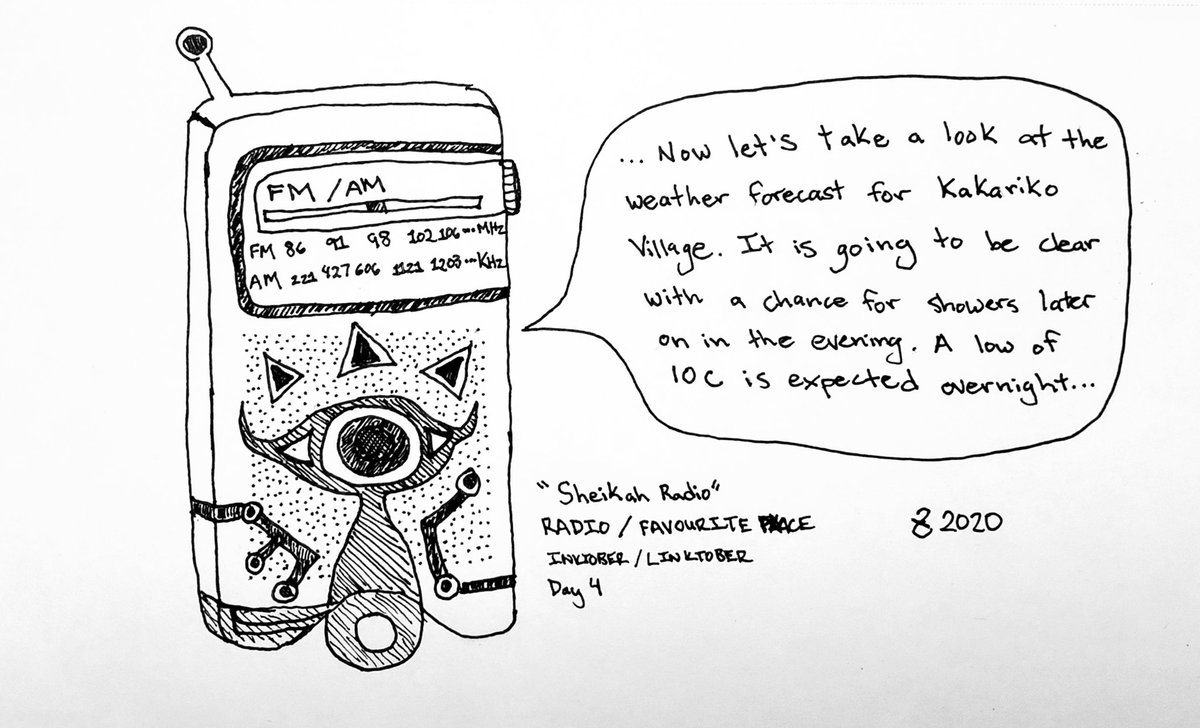 FM/AM
FM 86 91 98 102 106...MHz
AM 221 427 606 1121 1203...KHz
... Now let's take a look at the
weather forecast for Kakariko
Village. It is going to be clear
with a chance for showers later
on in the evening. A low of
10 C is expected overnight...
"Sheikah Radio"
RADIO / FAVOURITE PLACE
INKTOBER / LINKTOBER
Day 4
2020